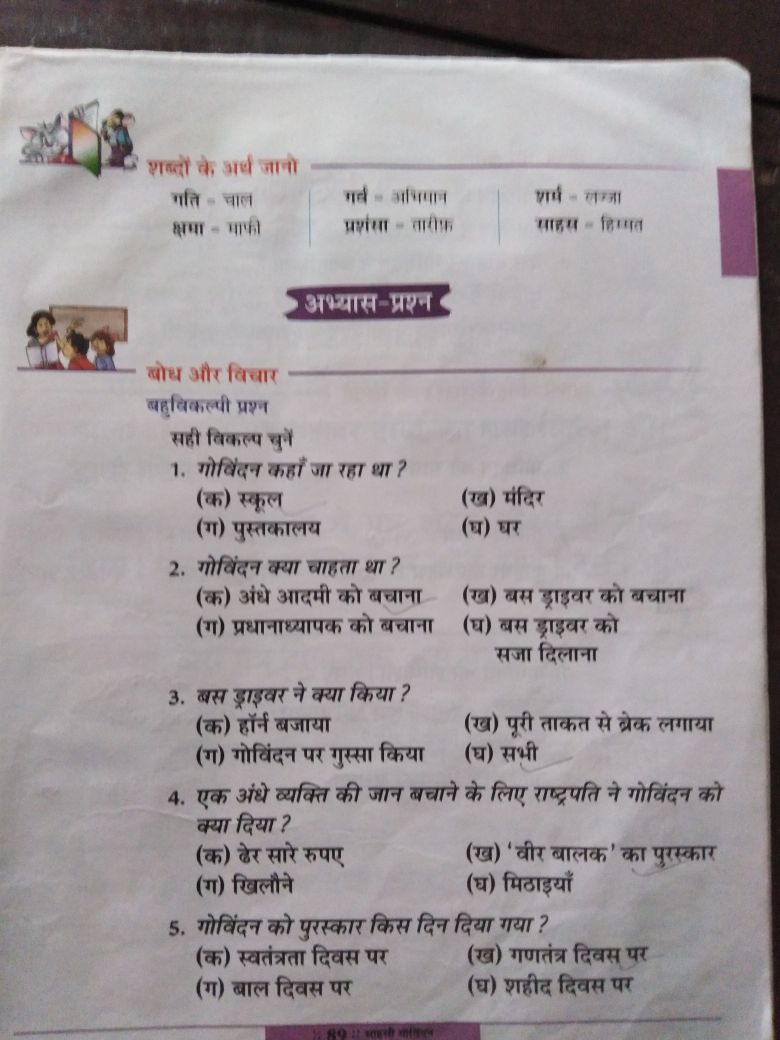 शब्दों के अर्थ जानो
गति = चाल गर्व = अभिमान शर्म = लज्जा
क्षमा = माफी प्रशंसा = तारीफ़ साहस = हिम्मत
अभ्यास-प्रश्न
बोध और विचार
बहुविकल्पी प्रश्न
सही विकल्प चुनें
1. गोविंदन कहाँ जा रहा था ?
(क) स्कूल (ख) मंदिर
(ग) पुस्तकालय (घ) घर
2. गोविंदन क्या चाहता था ?
(क) अंधे आदमी को बचाना (ख) बस ड्राइवर को बचाना
(ग) प्रधानाध्यापक को बचाना (घ) बस ड्राइवर को
सजा दिलाना
3. बस ड्राइवर ने क्या किया ?
(क) हॉर्न बजाया (ख) पूरी ताकत से ब्रेक लगाया
(ग) गोविंदन पर गुस्सा किया (घ) सभी
4. एक अंधे व्यक्ति की जान बचाने के लिए राष्ट्रपति ने गोविंदन को
क्या दिया ?
(क) ढेर सारे रुपए (ख) ‘वीर बालक’ का पुरस्कार
(ग) खिलौने (घ) मिठाइयाँ
5. गोविंदन को पुरस्कार किस दिन दिया गया ?
(क) स्वतंत्रता दिवस पर (ख) गणतंत्र दिवस पर
(ग) बाल दिवस पर (घ) शहीद दिवस पर
:: 89 :: साहसी गोविंदन